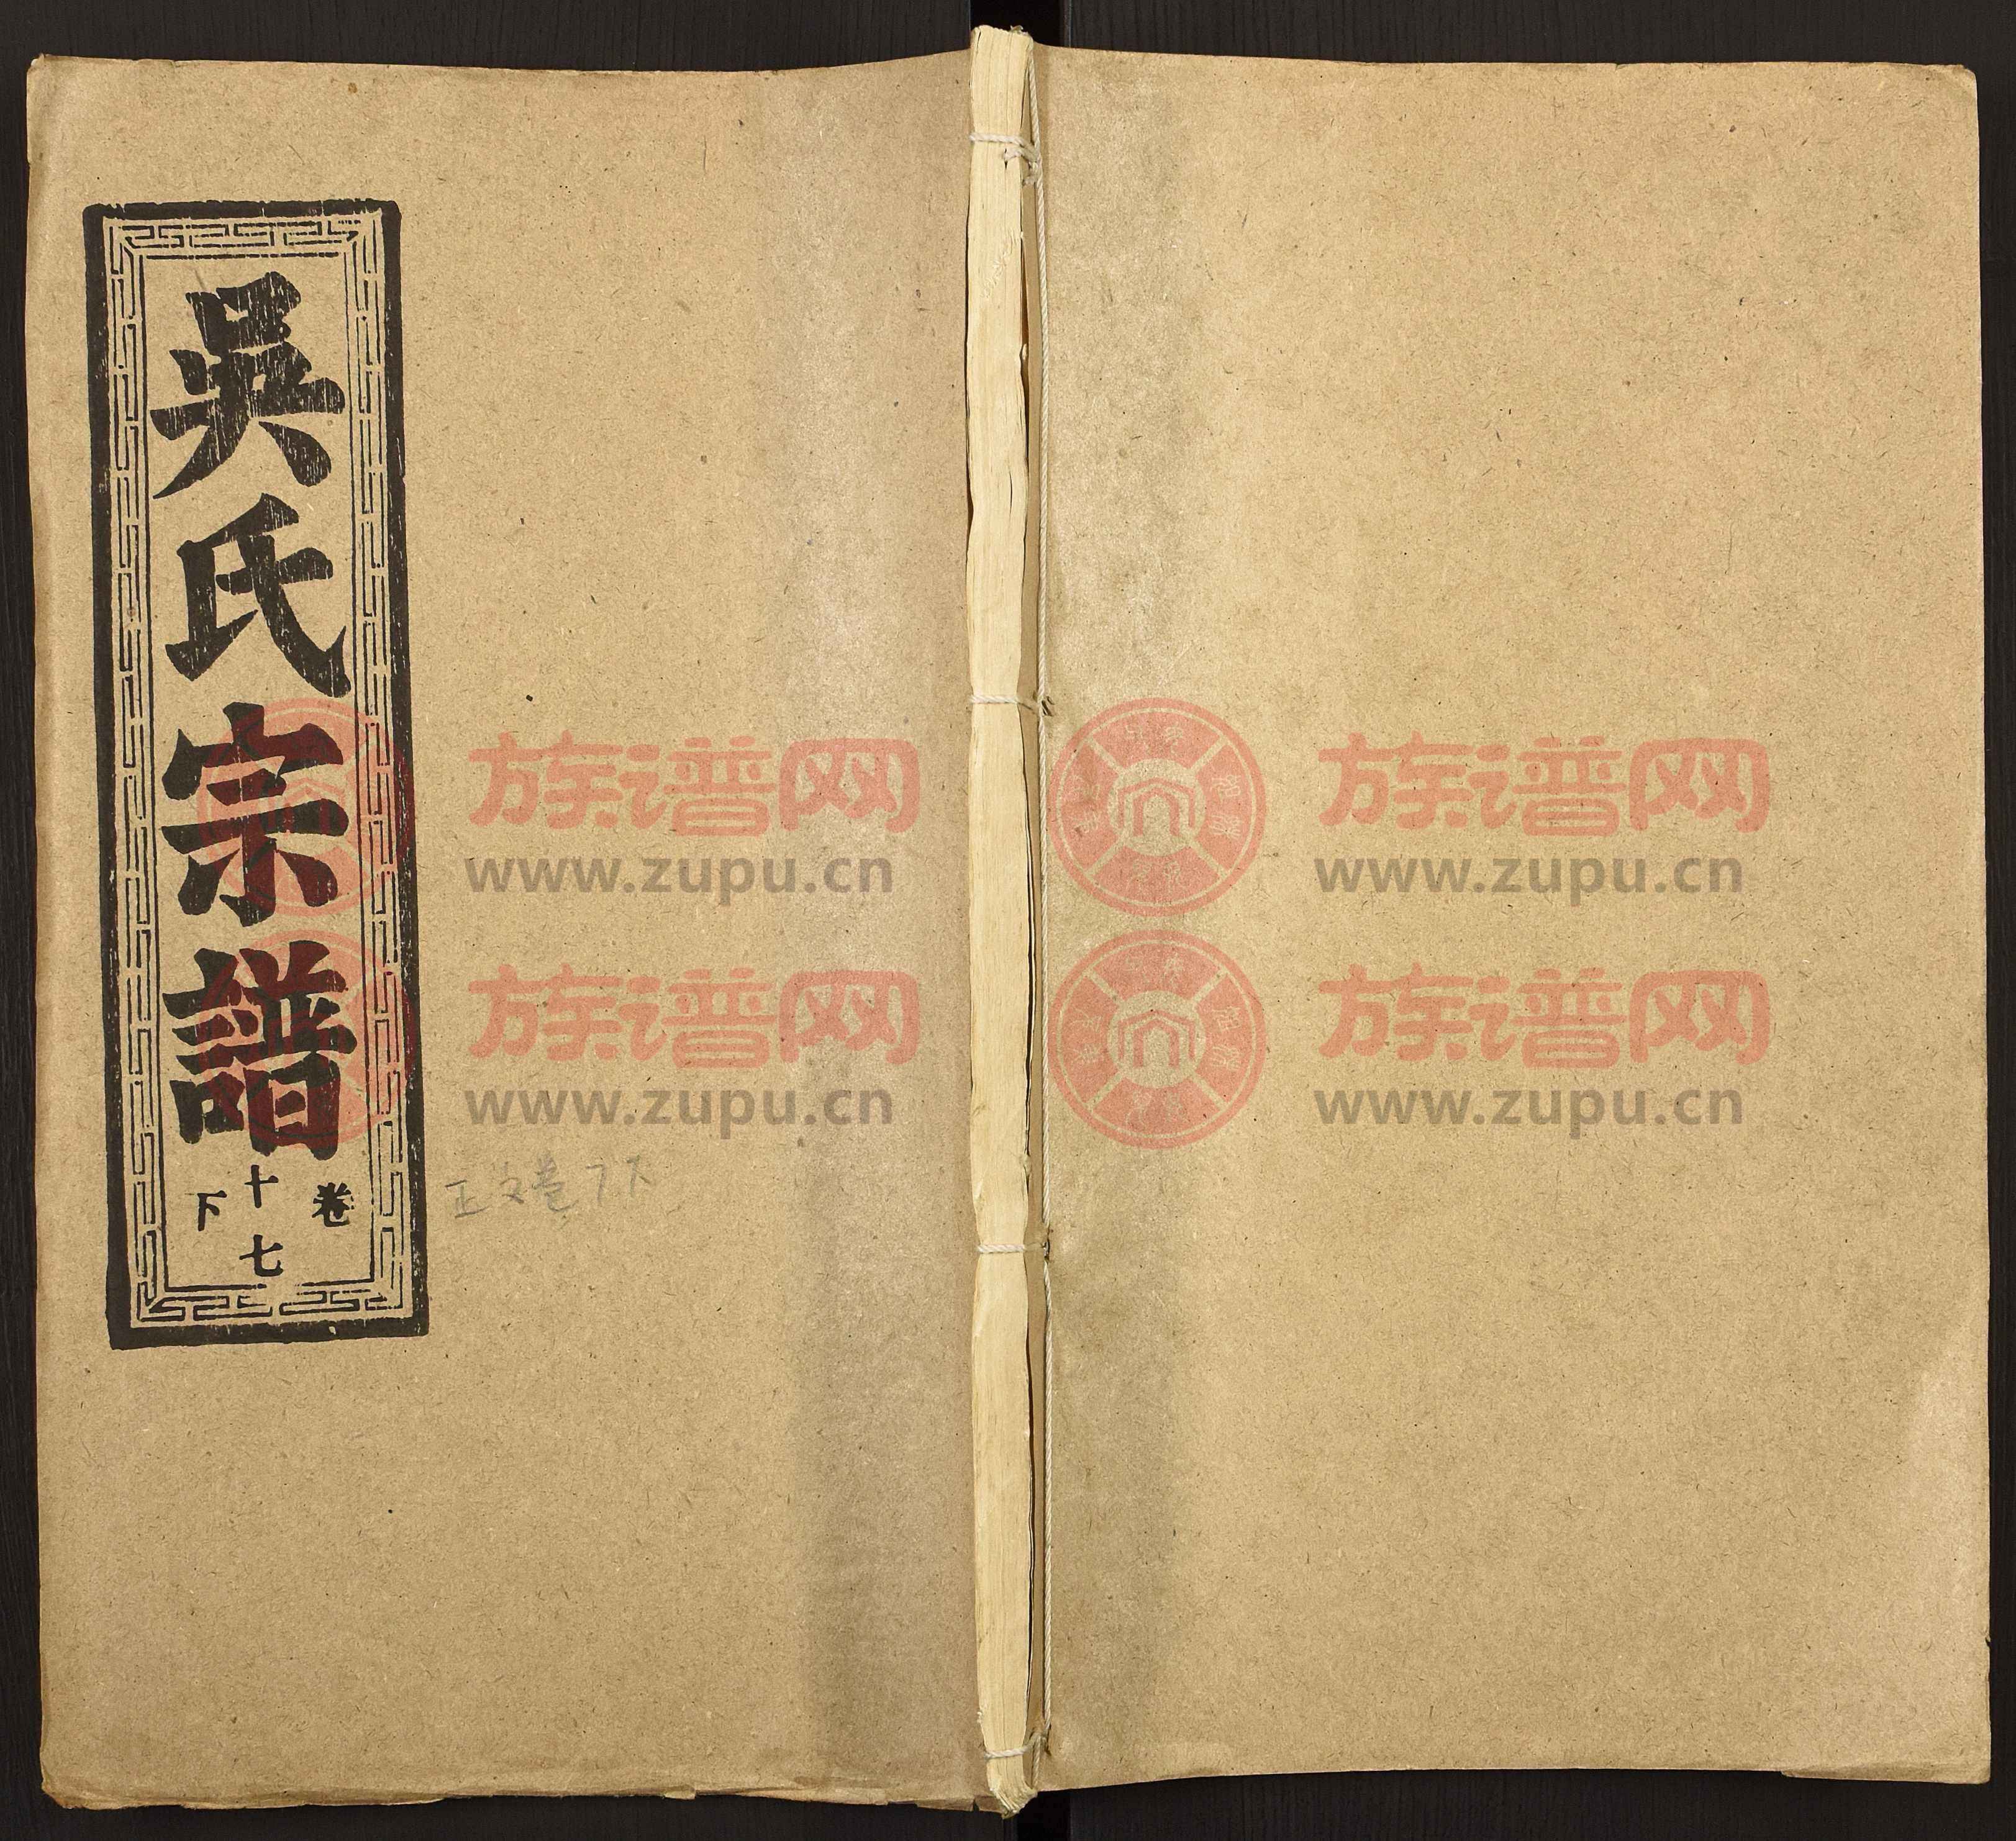 吳氏宗譜
卷十七下
正文卷7下
族谱网
www.zupu.cn
族谱网
www.zupu.cn
族谱网
www.zupu.cn
族谱网
www.zupu.cn